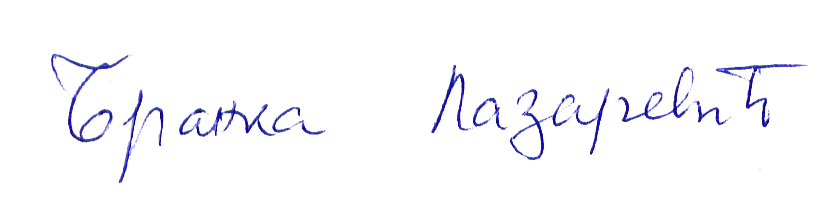 Бранка Лазаревић